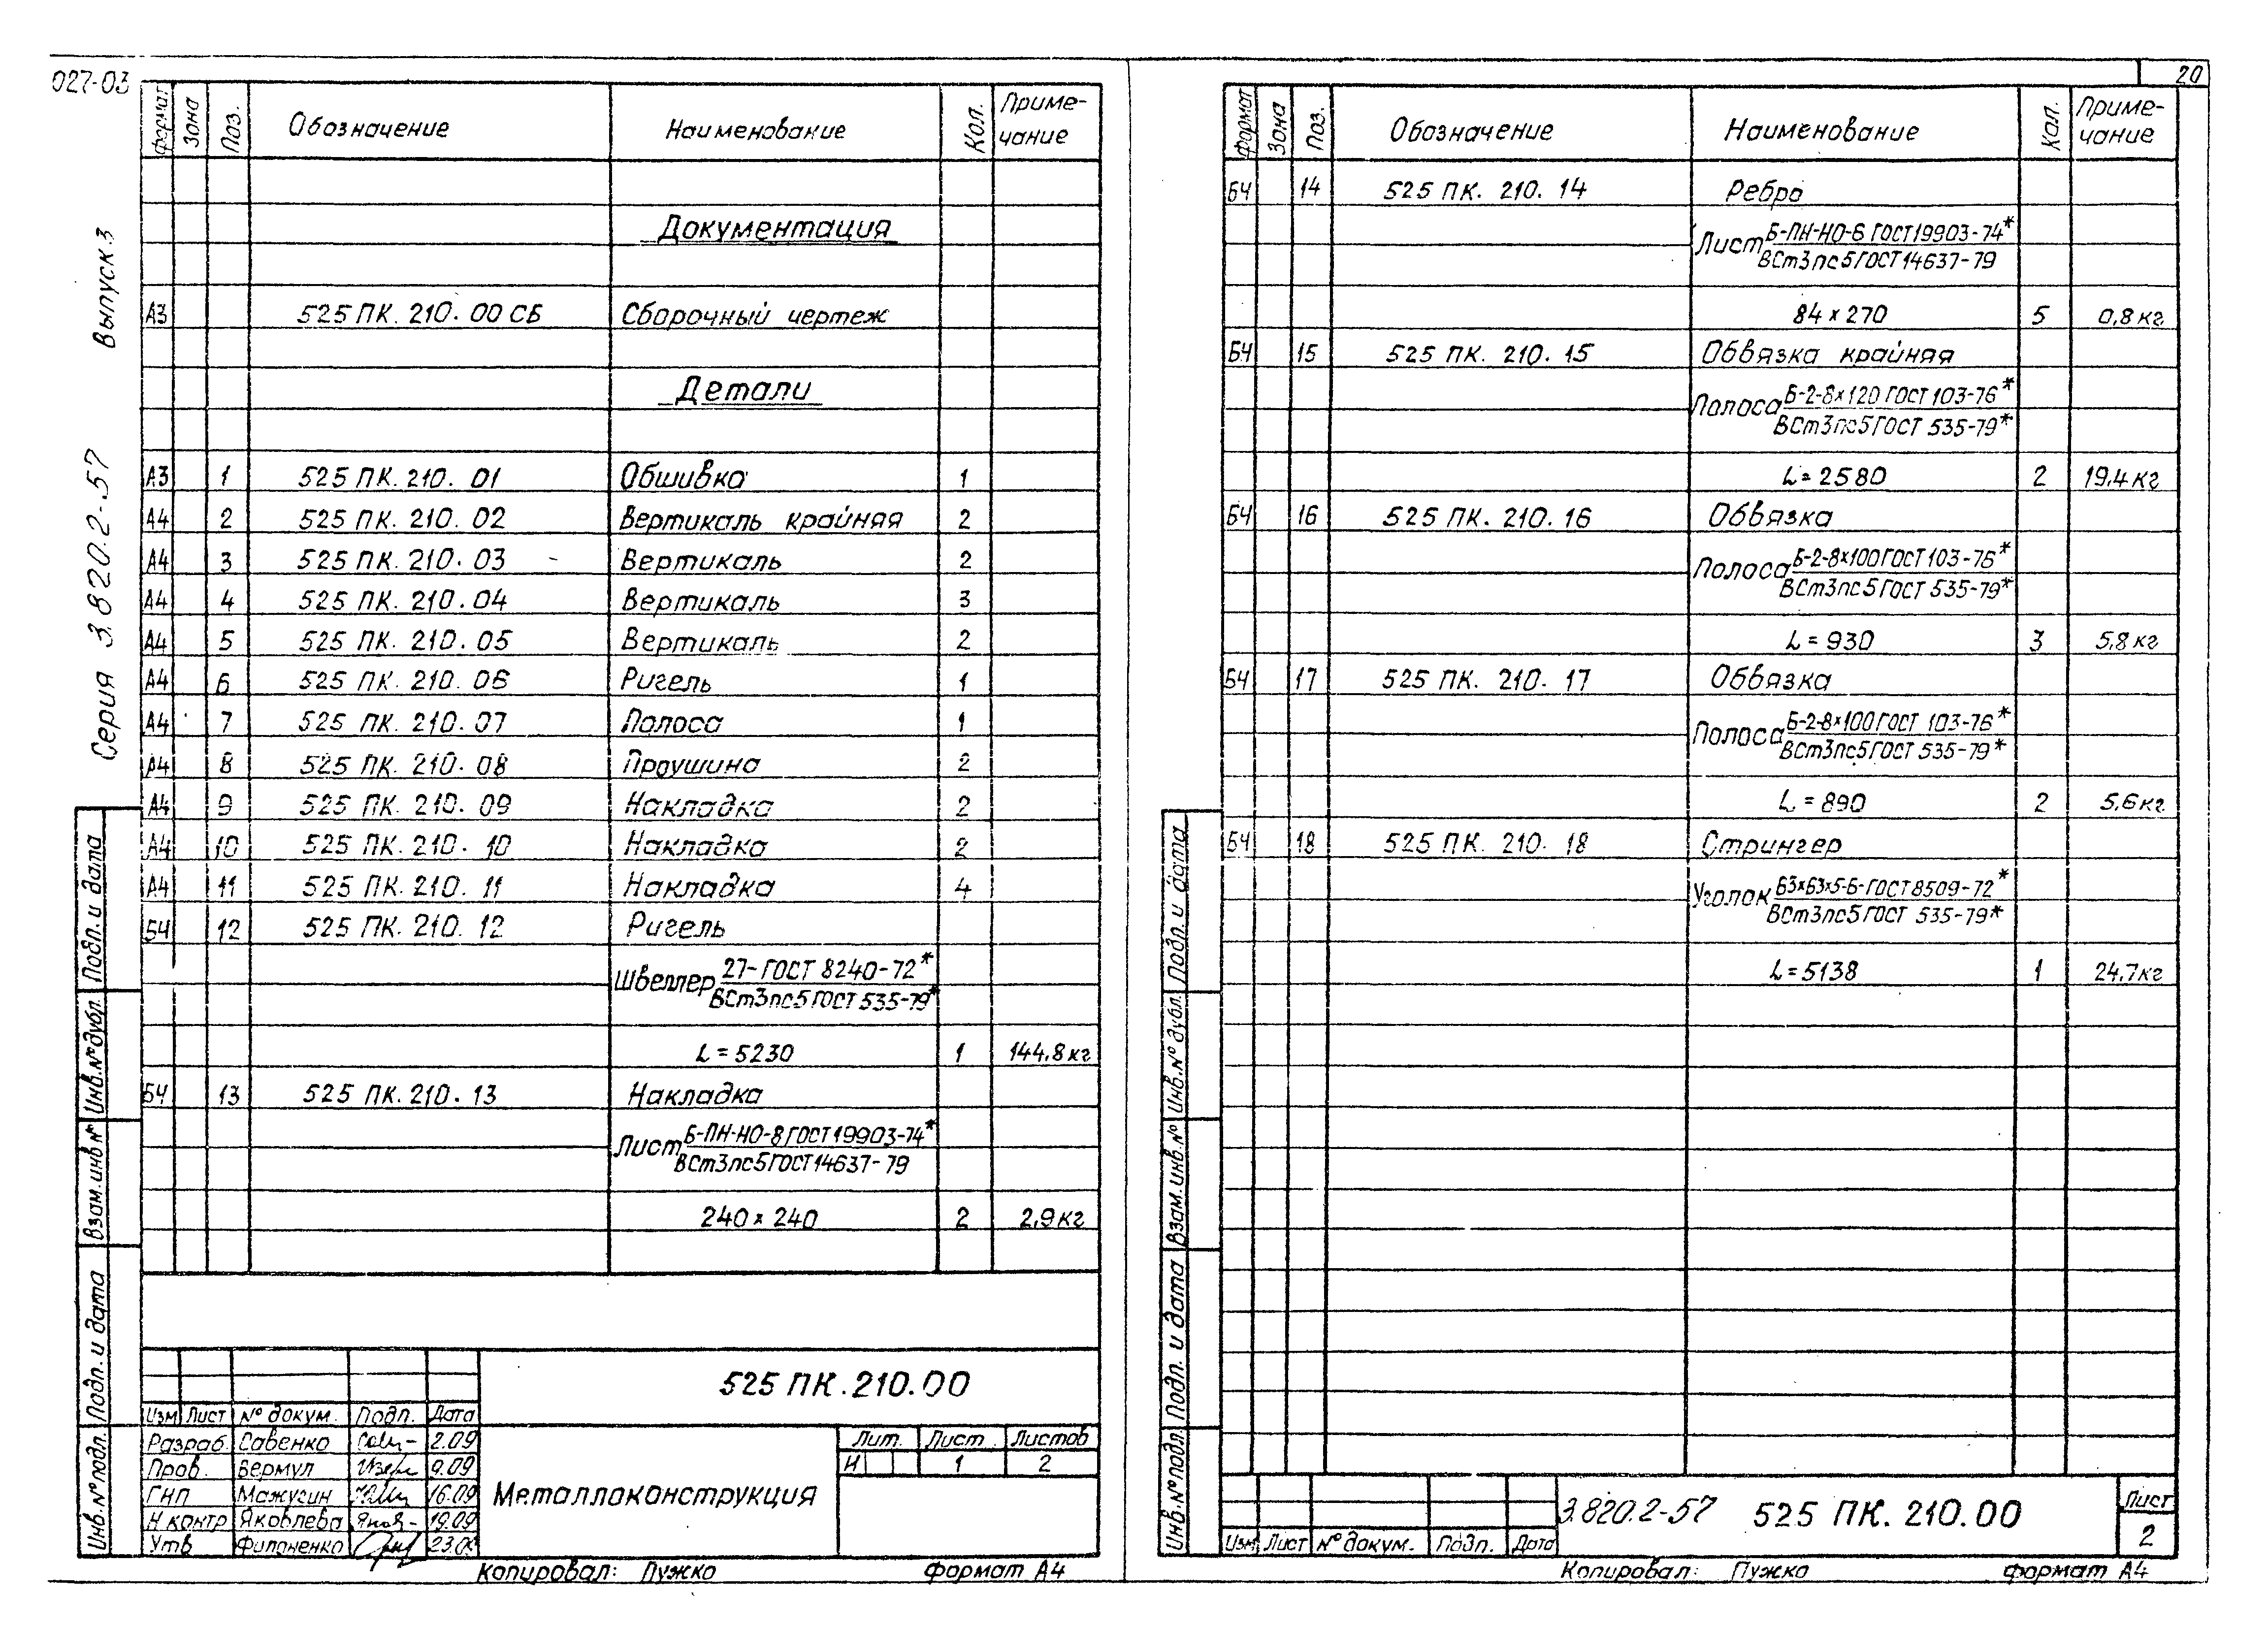 027-03
Серия 3.820.2-57 Выпуск 3
Формат Зона Поз. Обозначение Наименование Кол. Приме-
чание
Документация
А3 525 ПК. 210. 00 СБ Сборочный чертеж
Детали
А3 1 525 ПК. 210. 01 Обшивка 1
А4 2 525 ПК. 210. 02 Вертикаль крайняя 2
А4 3 525 ПК. 210. 03 Вертикаль 2
А4 4 525 ПК. 210. 04 Вертикаль 3
А4 5 525 ПК. 210. 05 Вертикаль 2
А4 6 525 ПК. 210. 06 Ригель 1
А4 7 525 ПК. 210. 07 Полоса 1
А4 8 525 ПК. 210. 08 Проушина 2
А4 9 525 ПК. 210. 09 Накладка 2
А4 10 525 ПК. 210. 10 Накладка 2
А4 11 525 ПК. 210. 11 Накладка 4
БЧ 12 525 ПК. 210. 12 Ригель
Швеллер 27-ГОСТ 8240-72*
ВСт3пс5 ГОСТ 535-79*
L=5230 1 144,8 кг
БЧ 13 525 ПК. 210. 13 Накладка
Лист Б-ПН-НО-8 ГОСТ 19903-74*
ВСт3пс5 ГОСТ 14637-79
240 × 240 2 2,9 кг
525 ПК. 210. 00
Изм Лист № докум. Подп. Дата
Разраб. Савенко 2.09
Пров. Вермул 9.09
ГИП Мажугин 16.09
Н контр Яковлева 19.09
Утв Филоненко
Металлоконструкция
Лит. Лист Листов
И 1 2
Копировал: Пужко Формат А4
Инв. № подл. Подп. и дата Взам. инв. № Инв. № дубл. Подп. и дата
20
Формат Зона Поз. Обозначение Наименование Кол. Приме-
чание
БЧ 14 525 ПК. 210. 14 Ребро
Лист Б-ПН-НО-6 ГОСТ 19903-74*
ВСт3пс5 ГОСТ 14637-79
84 × 270 5 0,8 кг
БЧ 15 525 ПК. 210. 15 Обвязка крайняя
Полоса Б-2-8×120 ГОСТ 103-76*
ВСт3пс5 ГОСТ 535-79*
L=2580 2 19,4 кг
БЧ 16 525 ПК. 210. 16 Обвязка
Полоса Б-2-8×100 ГОСТ 103-76*
ВСт3пс5 ГОСТ 535-79*
L=930 3 5,8 кг
БЧ 17 525 ПК. 210. 17 Обвязка
Полоса Б-2-8×100 ГОСТ 103-76*
ВСт3пс5 ГОСТ 535-79*
L=890 2 5,6 кг
БЧ 18 525 ПК. 210. 18 Стрингер
Уголок 63×63×5-Б-ГОСТ 8509-72*
ВСт3пс5 ГОСТ 535-79*
L=5138 1 24,7 кг
3.820.2-57 525 ПК. 210. 00
Лист
2
Изм Лист № докум. Подп. Дата
Копировал: Пужко Формат А4
Инв. № подл. Подп. и дата Взам. инв. № Инв. № дубл. Подп. и дата